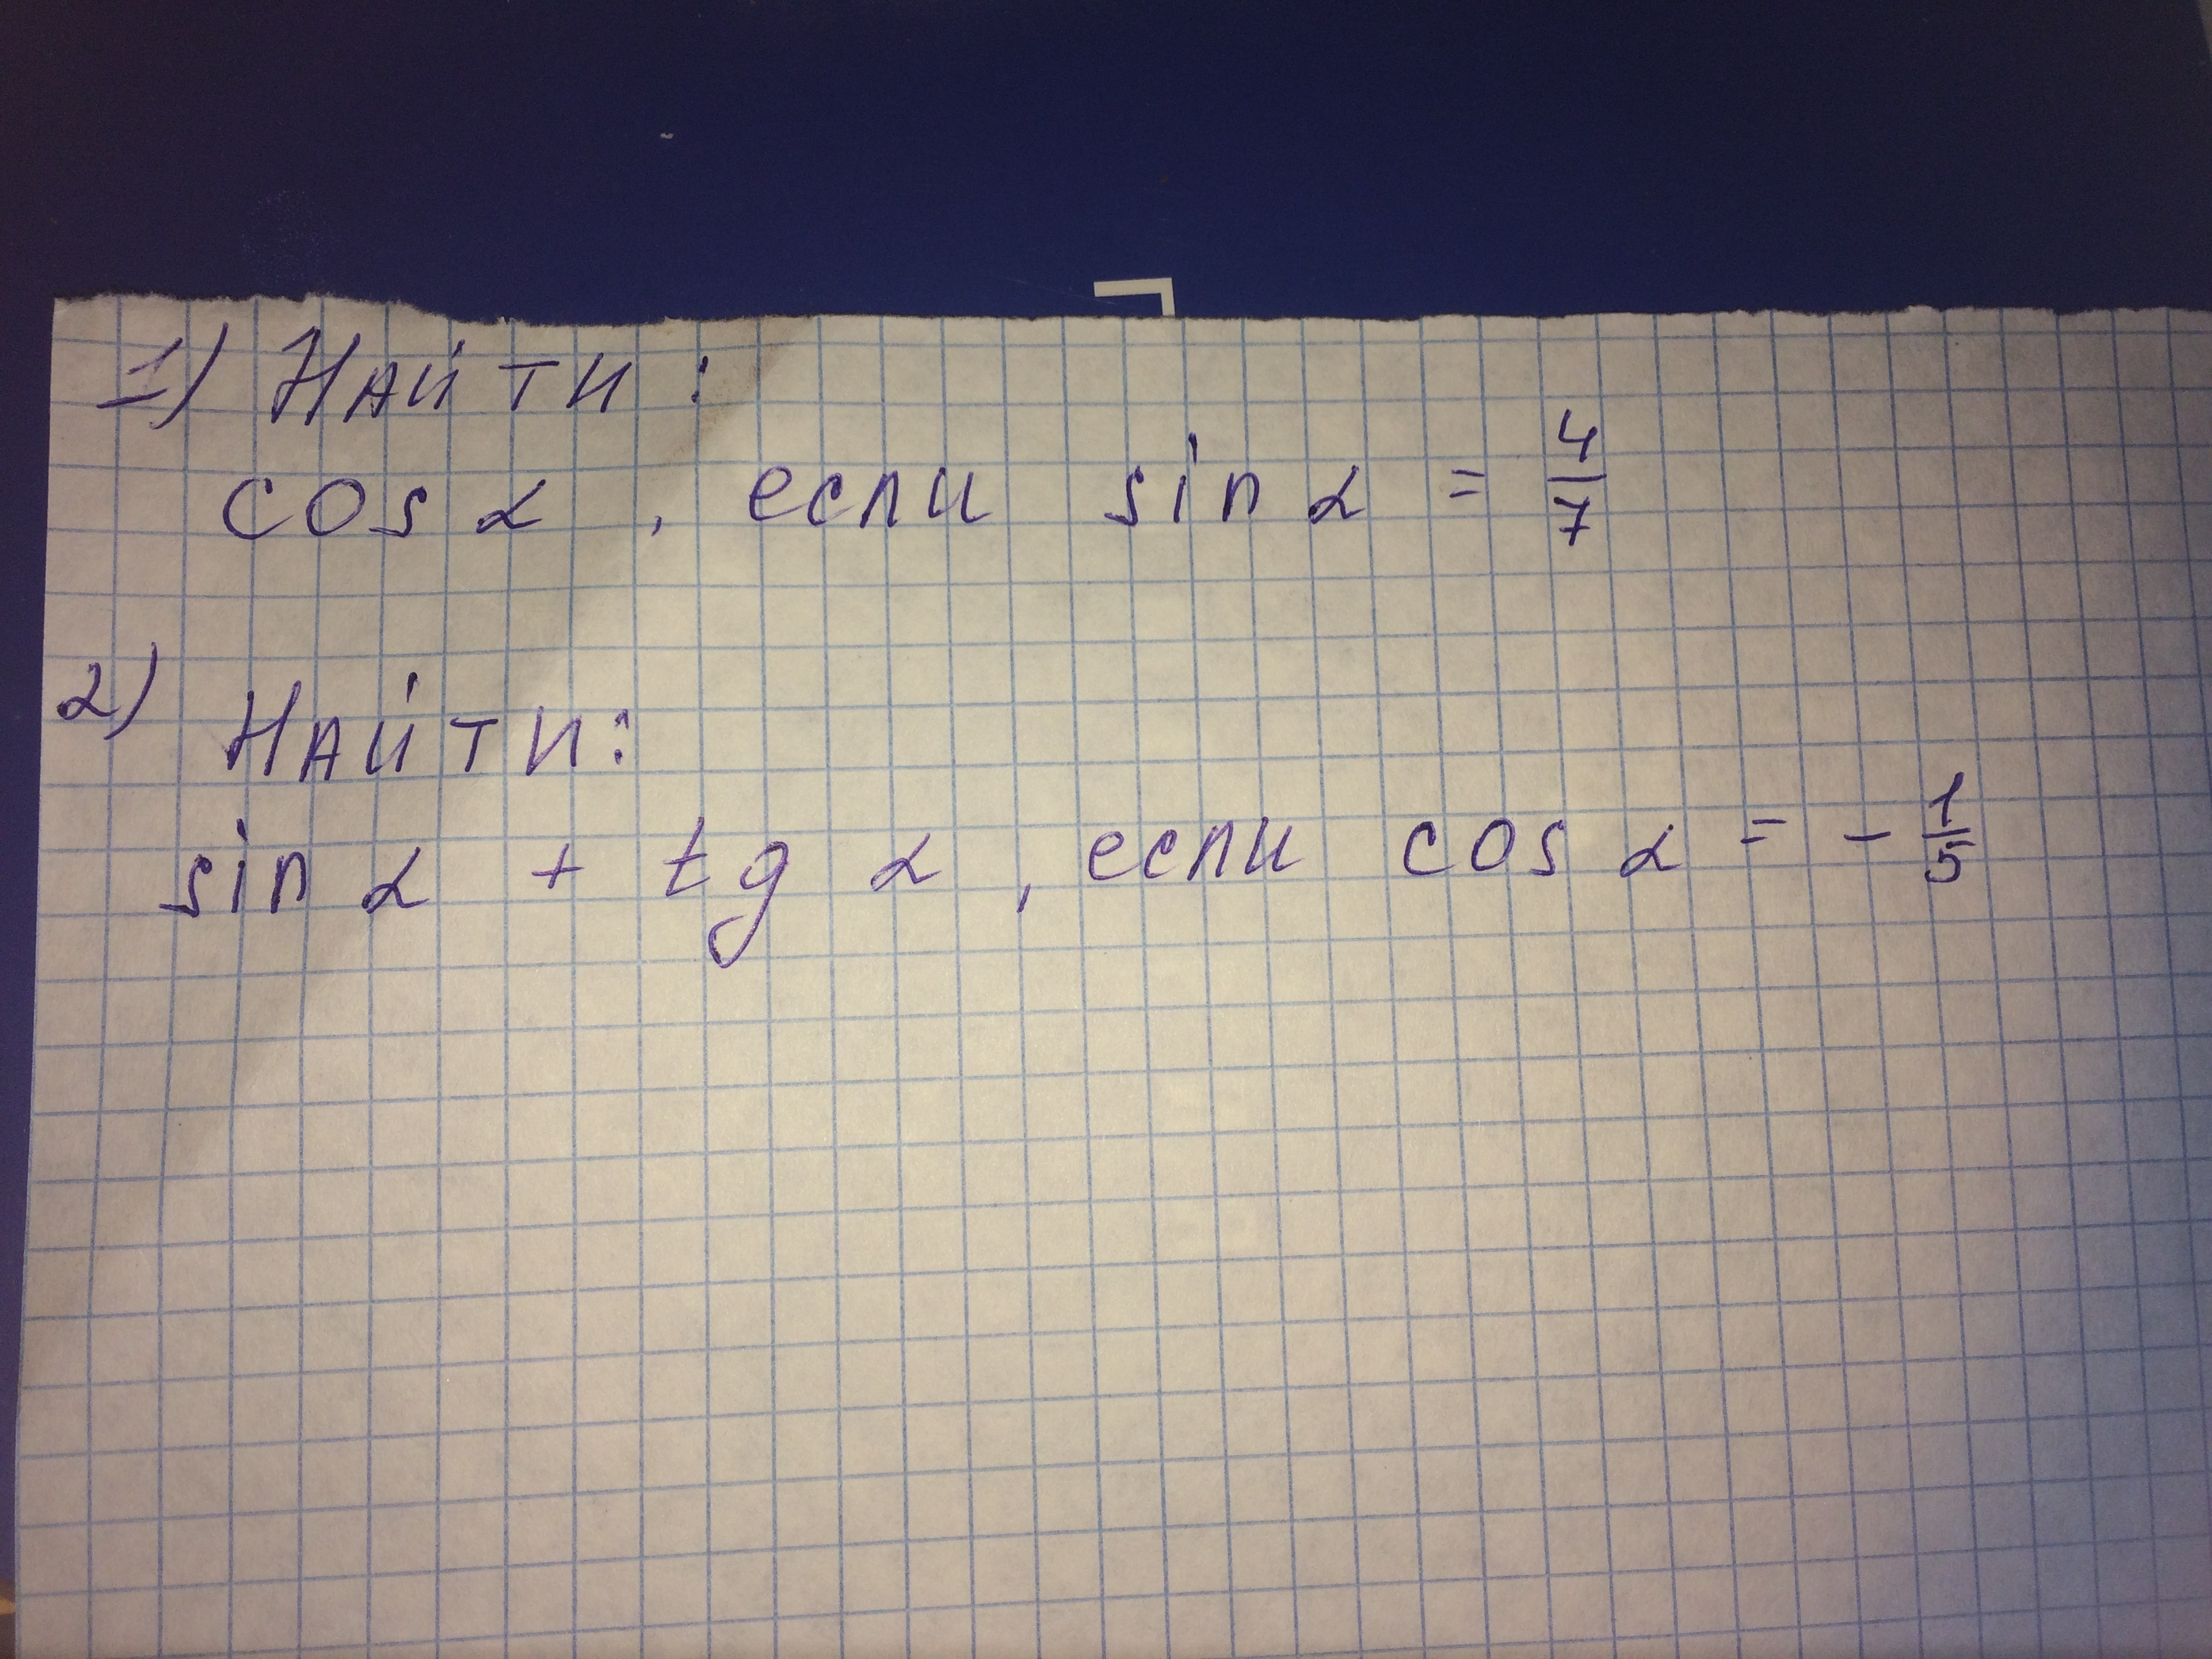 1) Найти:
cos α, если sin α = 4/7
2) Найти:
sin α + tg α, если cos α = - 1/5